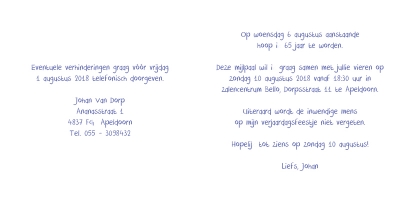 Eventuele verhinderingen graag vóór vrijdag
1 augustus 2018 telefonisch doorgeven.
Johan van Dorp
Ananasstraat 1
4837 FG Apeldoorn
Tel. 055 - 3098432
Op woensdag 6 augustus aanstaande
hoop i 65 jaar te worden.
Deze mijlpaal wil i graag samen met jullie vieren op
zondag 10 augustus 2018 vanaf 18:30 uur in
zalencentrum Bello, Dorpsstraat 11 te Apeldoorn.
Uiteraard wordt de inwendige mens
op mijn verjaardagsfeestje niet vergeten.
Hopelij tot ziens op zondag 10 augustus!
Liefs, Johan